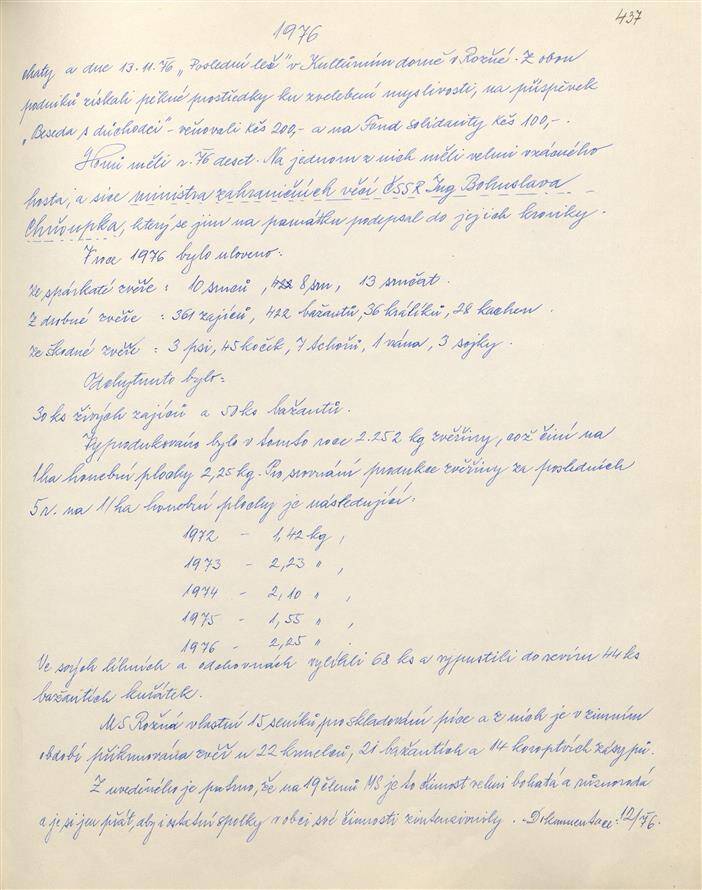 1976
437
chaty a dne 13.11.76 „Poslední leč" v Kulturním domě v Rožné. Z obou
podniků získali pěkné prostředky ku zvelebení myslivosti, na příspěvek
„Beseda s důchodci" - věnovali Kčs 200,- a na Fond solidarity Kčs 100,-.
Honů měli r. 76 deset. Na jednom z nich měli velmi vzácného
hosta, a sice ministra zahraničních věcí ČSSR Ing Bohuslava
Chňoupka, který se jim na památku podepsal do jejich kroniky.
V roce 1976 bylo uloveno:
Ze spárkaté zvěře : 10 srnců , 422 8 srn, 13 srnčat.
Z drobné zvěře : 361 zajíců, 422 bažantů, 36 králíků, 28 kachen.
Ze škodné zvěře : 3 psi, 45 koček, 7 tchořů, 1 vrána, 3 sojky.
Odchytnuto bylo:
30 ks živých zajíců a 50 ks bažantů.
Vyprodukováno bylo v tomto roce 2.252 kg zvěřiny, což činí na
1 ha honební plochy 2,25 kg. Pro srovnání produkce zvěřiny za posledních
5 r. na 1 ha honební plochy je následující:
1972 - 1,42 kg ,
1973 - 2,23 " ,
1974 - 2,10 " ,
1975 - 1,55 " ,
1976 - 2,25 " .
Ve svých líhních a odchovnách vylíhli 68 ks a vypustili do revíru 44 ks
bažantích kuřátek.
MS Rožná vlastní 15 seníků pro skladování píce a z nich je v zimním
období přikrmována zvěř u 22 krmelců, 21 bažantích a 14 koroptvích zásypů.
Z uvedeného je patrno, že na 19 členů MS je to činnost velmi bohatá a různorodá
a je si jen přát, aby i ostatní spolky v obci své činnosti zintensivnily. Dokumentace: 12/76.